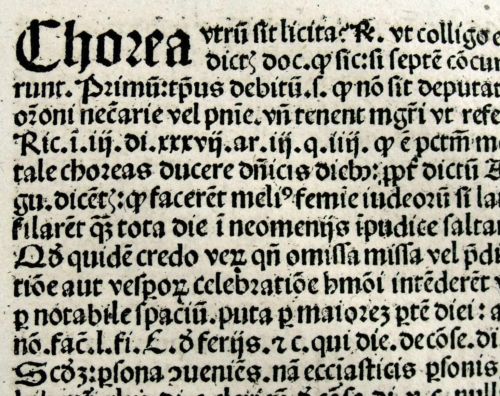 Chorea vtrũ sit licita: ℞. vt colligo e
dictꝭ doc. ꝙ sic: si septẽ cõcur
runt. Primũ: tp̃us debitũ .s. ꝙ nõ sit deputat
oroñi necc̃arie vel pñie. vñ tenent mgr̃i vt refe
Ric. ĩ .iij. di. xxxvij. ar. iij. q. iiij. ꝙ ẽ pctm̃ mo
tale choreas ducere dñicis diebꝰ: ꝓpt̃ dictũ A
gu. dicẽtꝭ: ꝙ facerẽt meliꝰ femie iudeorũ si la
filarẽt qᷓꝫ tota die ĩ neomenijs ĩpudice saltar
Qđ quidẽ credo veꝝ qñ omissa missa vel p̃di
tiõe aut vespoꝝ celebratiõe hmõi intẽderẽt v
ꝑ notabile spaciũ. puta ꝑ maiorez ꝑtẽ diei: a
nõ. fac̃. l. fi. C. đ ferijs. ⁊ c. qui die. de cõse. di
Scđz: ꝑsona ↄueniẽs. nã ecci̴asticis ꝑsonis